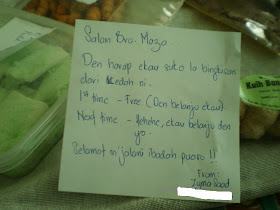 Salam Bro. Mozo
Den harap ekau suko la bingkisan
dari Kedah ni.
1st time - Free (Den belanjo ekau)
Next time - Hehehe, ekau belanjo den
yo.
Selamat m'jalani ibadah puaso !!
From:
Kuih Ban